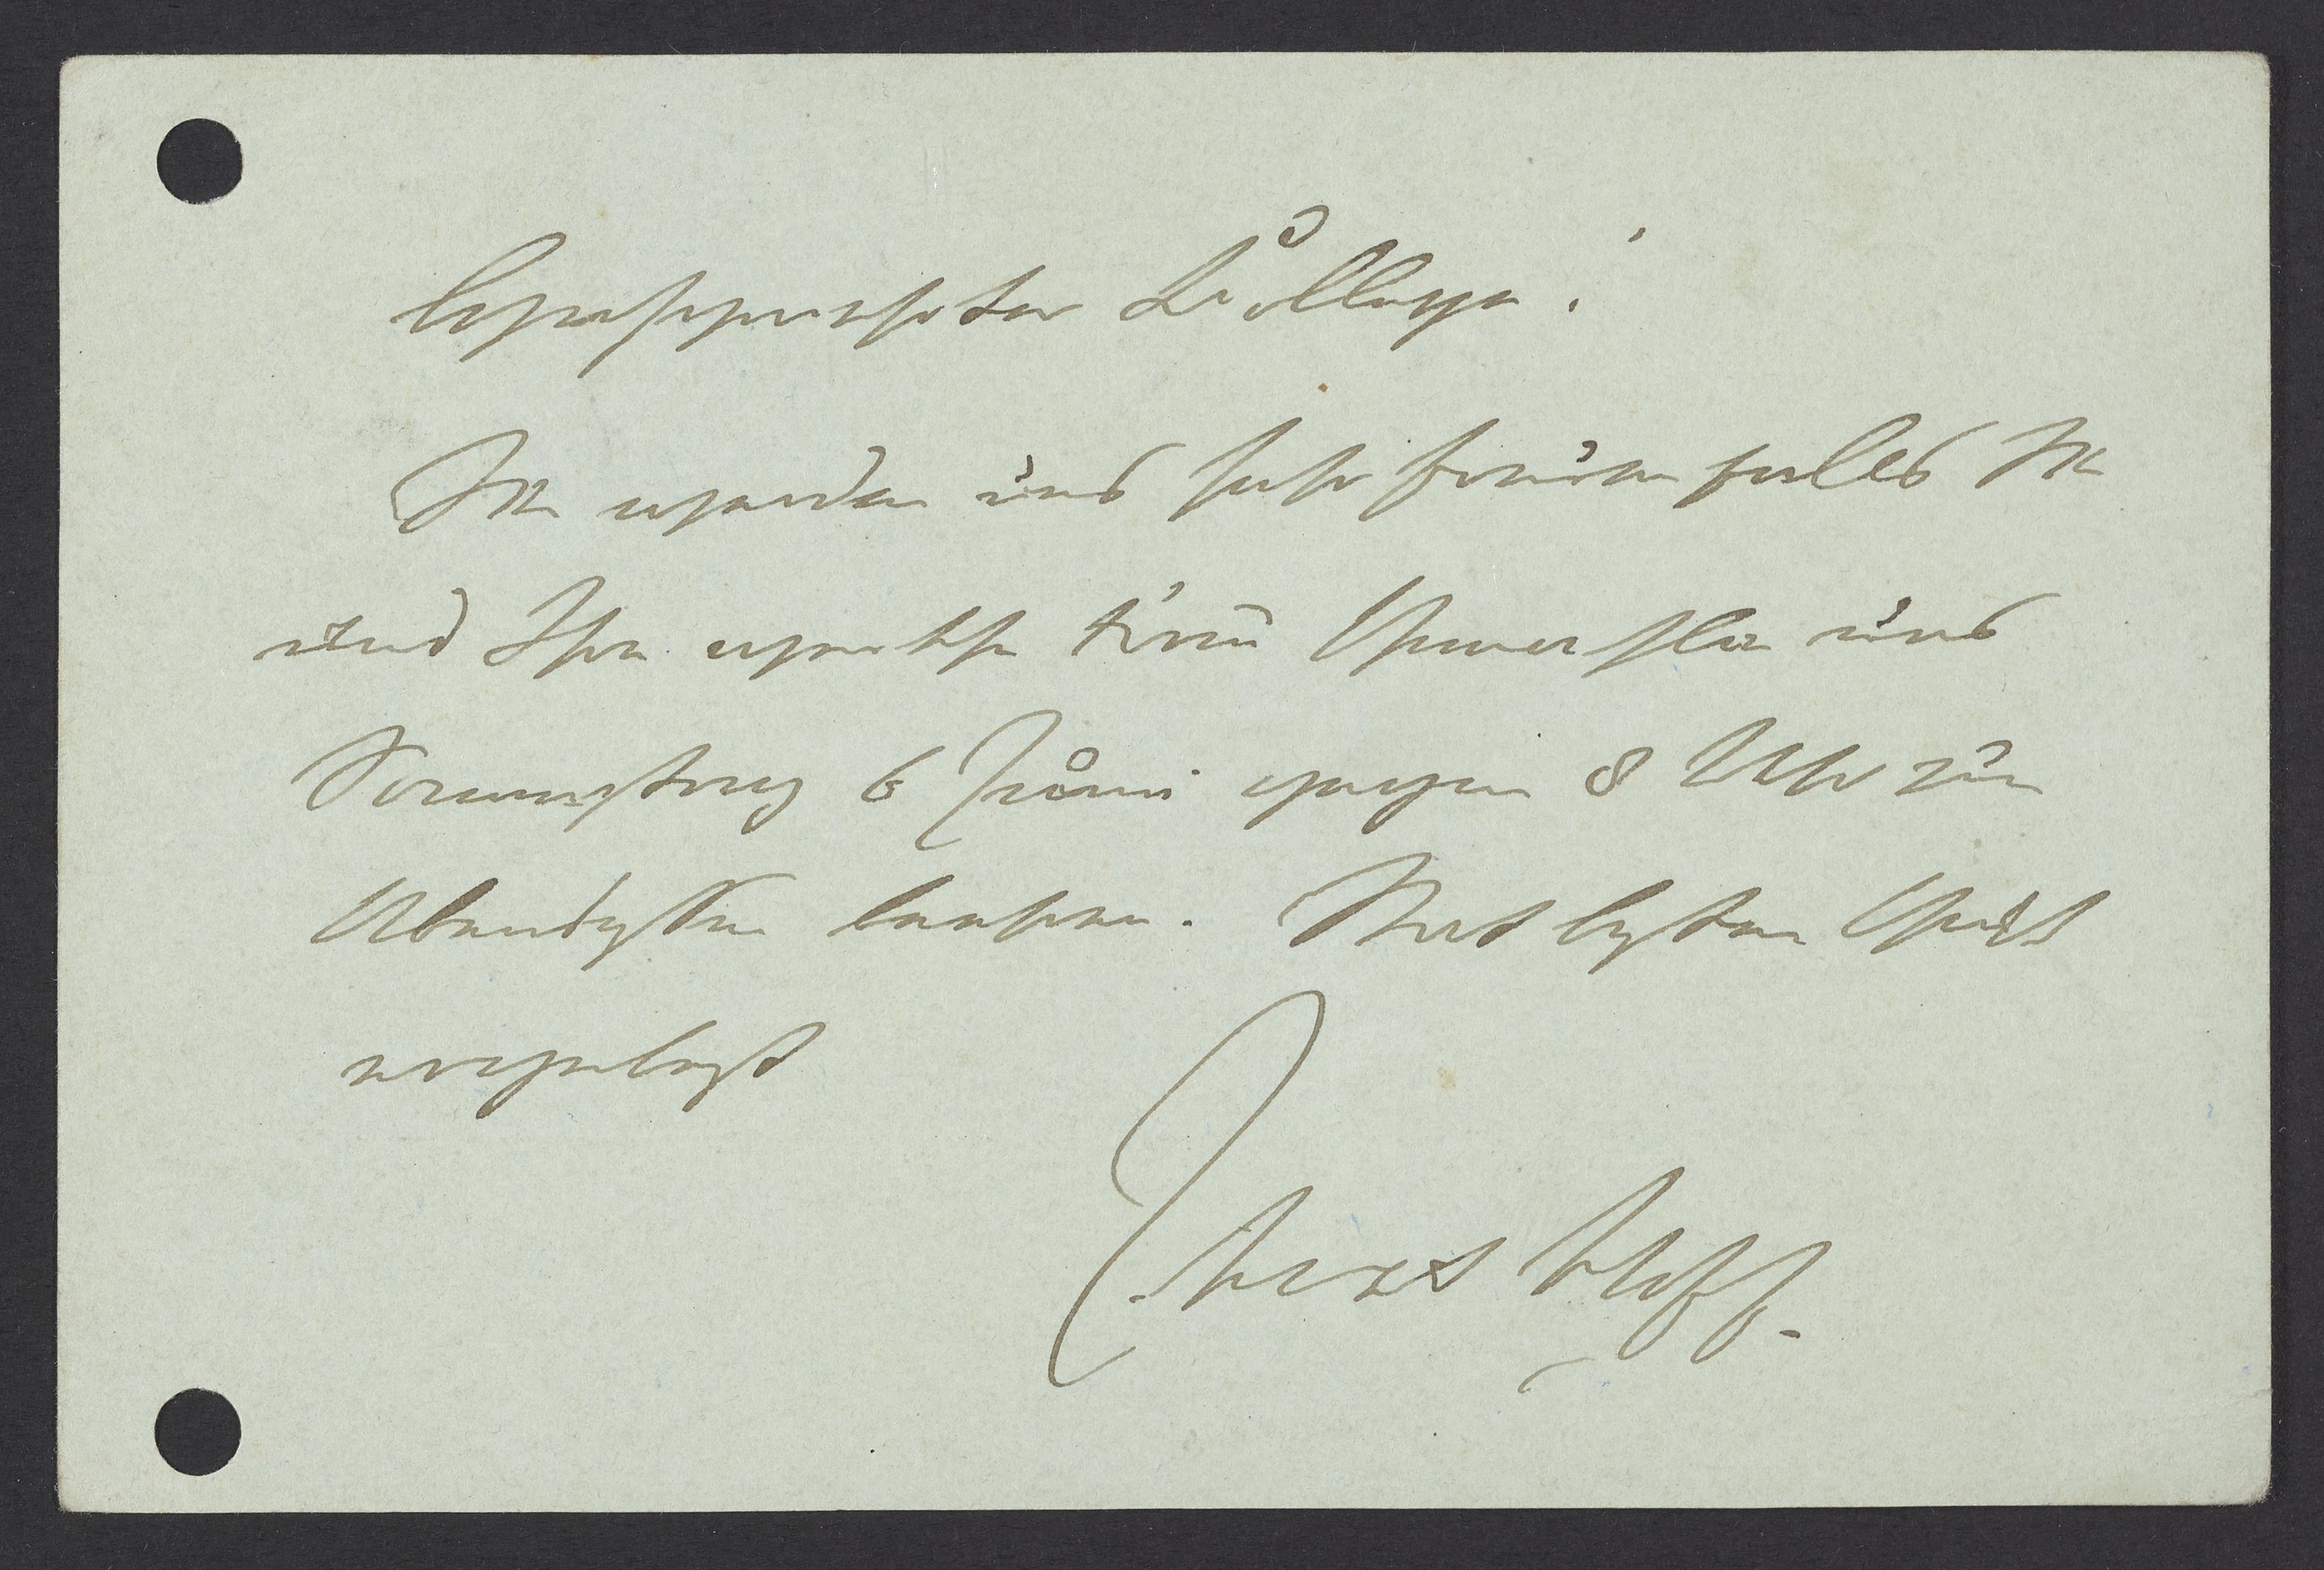 Hochgeehrter Kollege!
Wir werden uns sehr freuen falls Sie
und Ihre werthe Frau Gemahlin uns
Samstag 6 Juni gegen 8 Uhr zum
Abendessen beehren. Mit bestem Gruß
ergebenst